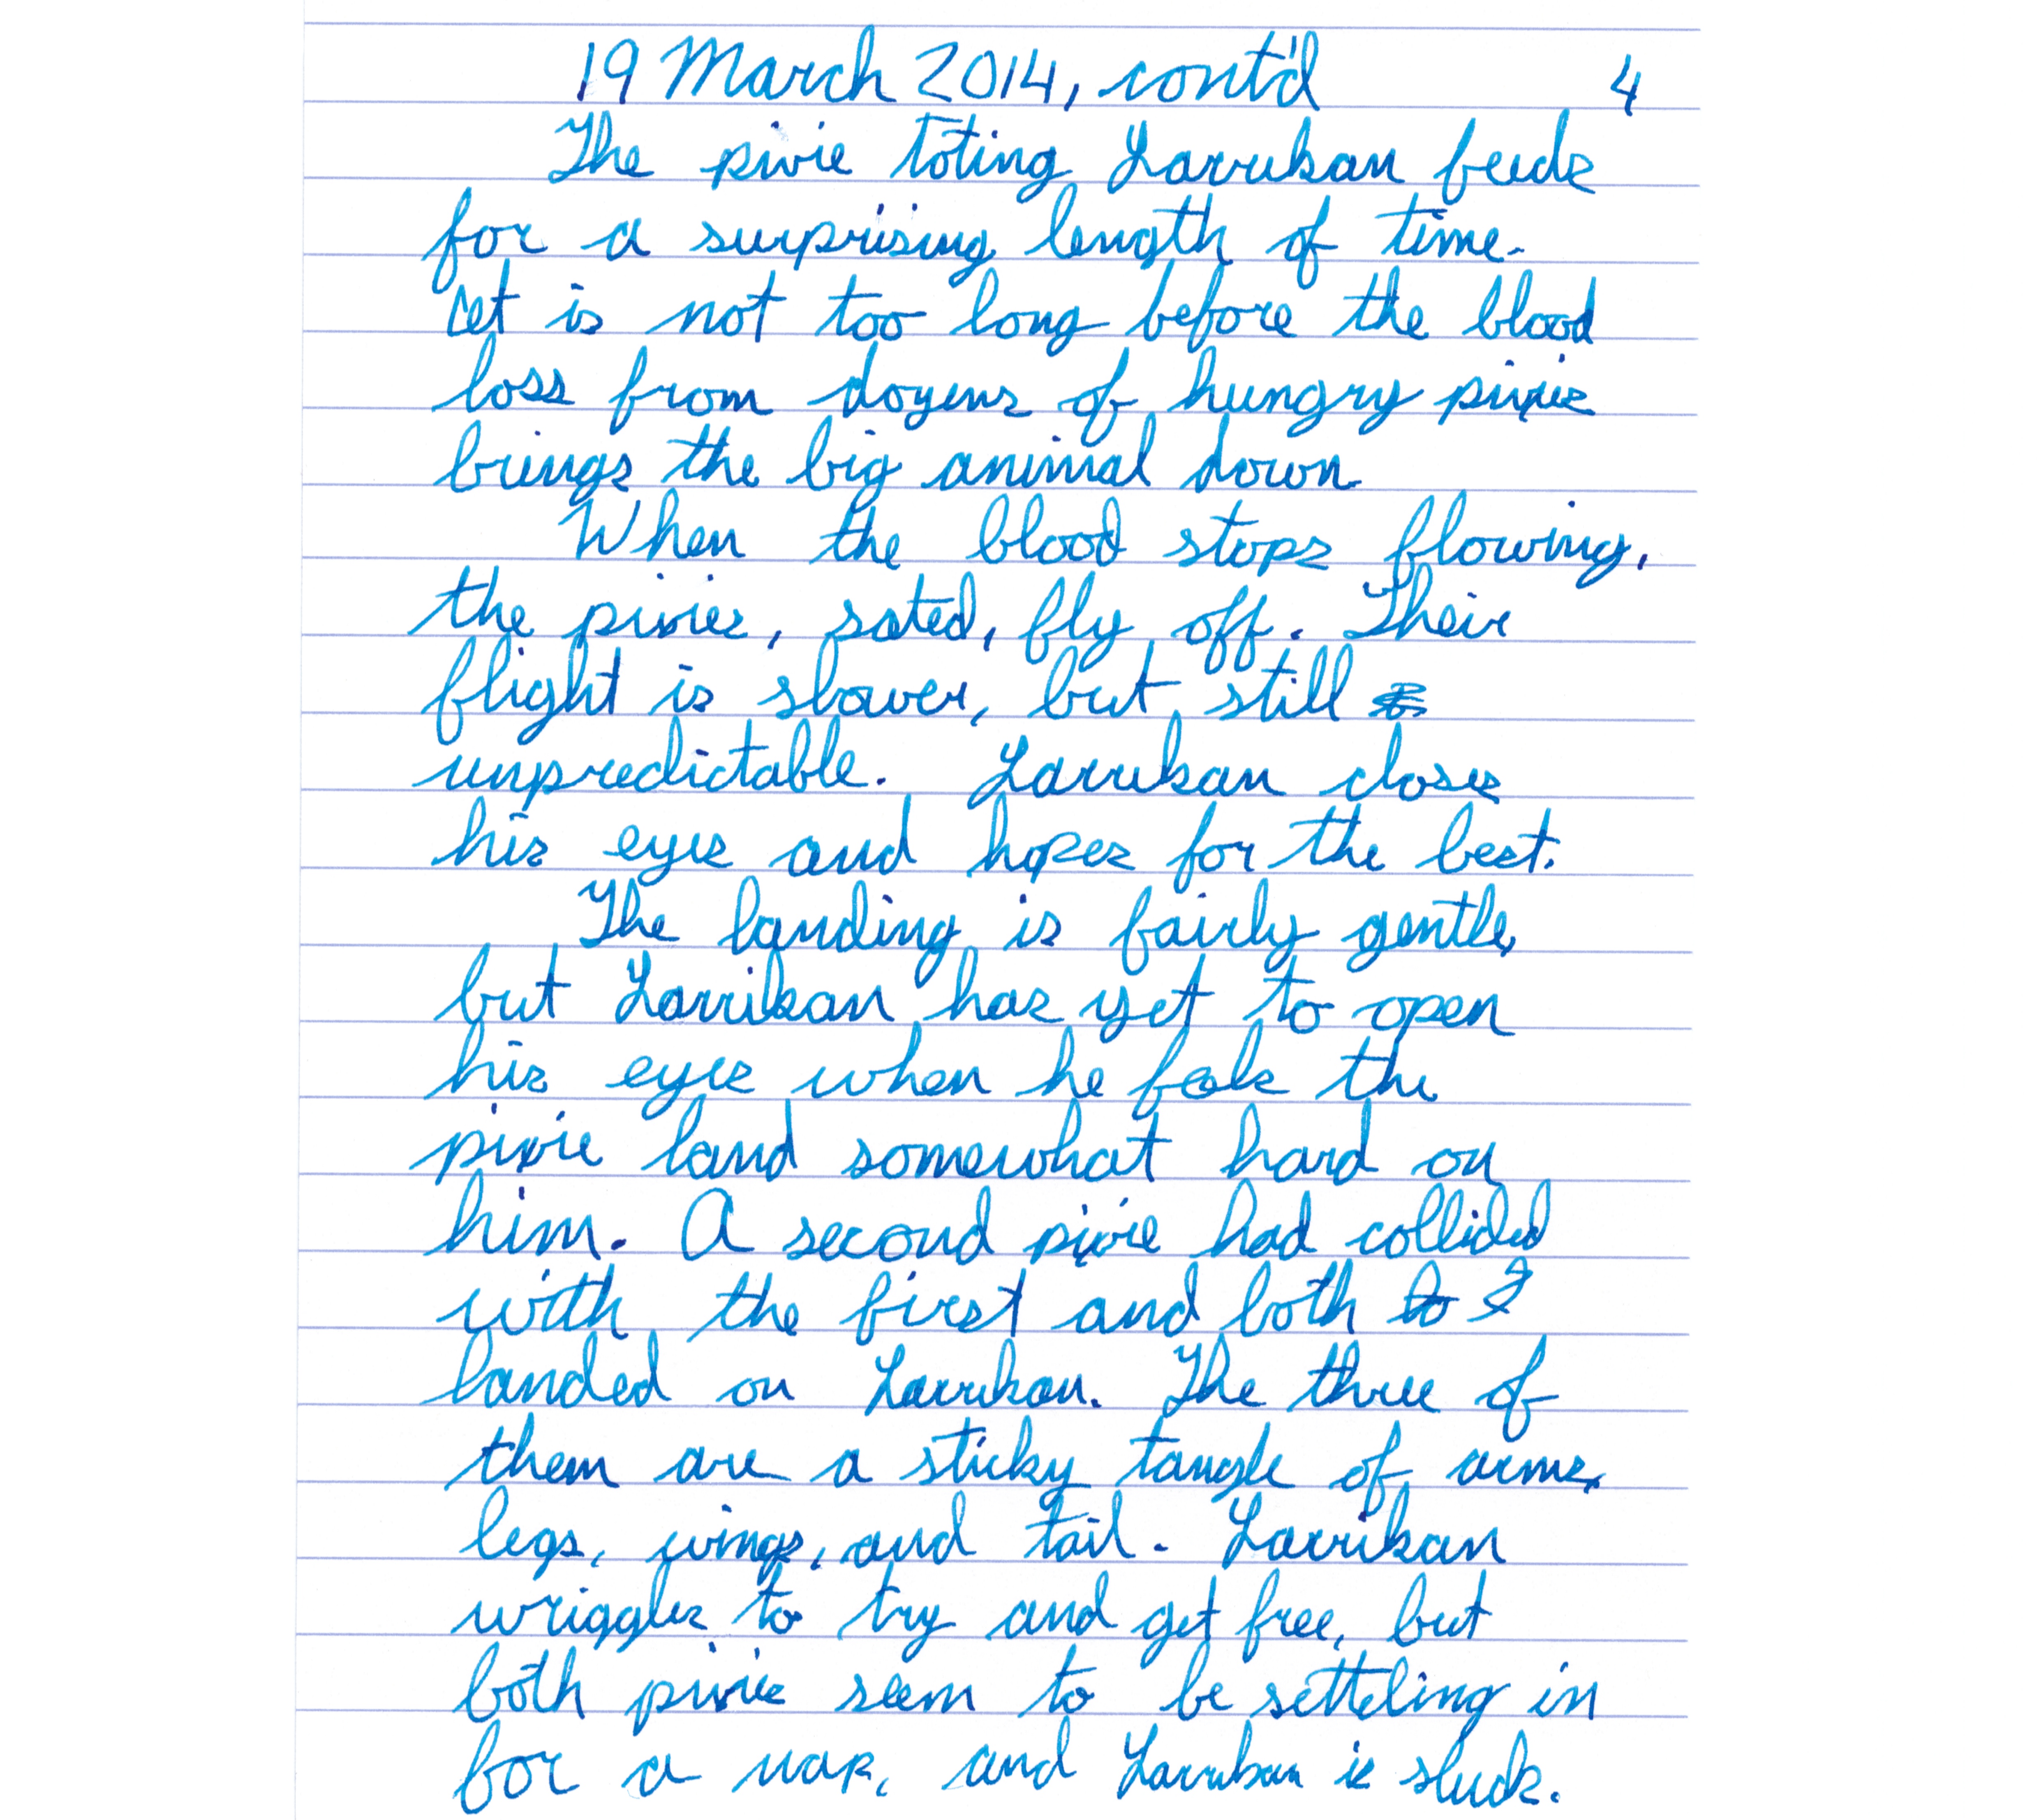 19 March 2014, cont'd 4
The pixie toting Larrikan feeds
for a surprising length of time.
It is not too long before the blood
loss from dozens of hungry pixies
brings the big animal down.
When the blood stops flowing,
the pixies, sated, fly off. Their
flight is slower, but still
unpredictable. Larrikan closes
his eyes and hopes for the best.
The landing is fairly gentle,
but Larrikan has yet to open
his eyes when he feels the
pixie land somewhat hard on
him. A second pixie had collided
with the first and both
landed on Larrikan. The three of
them are a sticky tangle of arms,
legs, wings, and tail. Larrikan
wriggles to try and get free, but
both pixies seem to be setteling in
for a nap, and Larrikan is stuck.